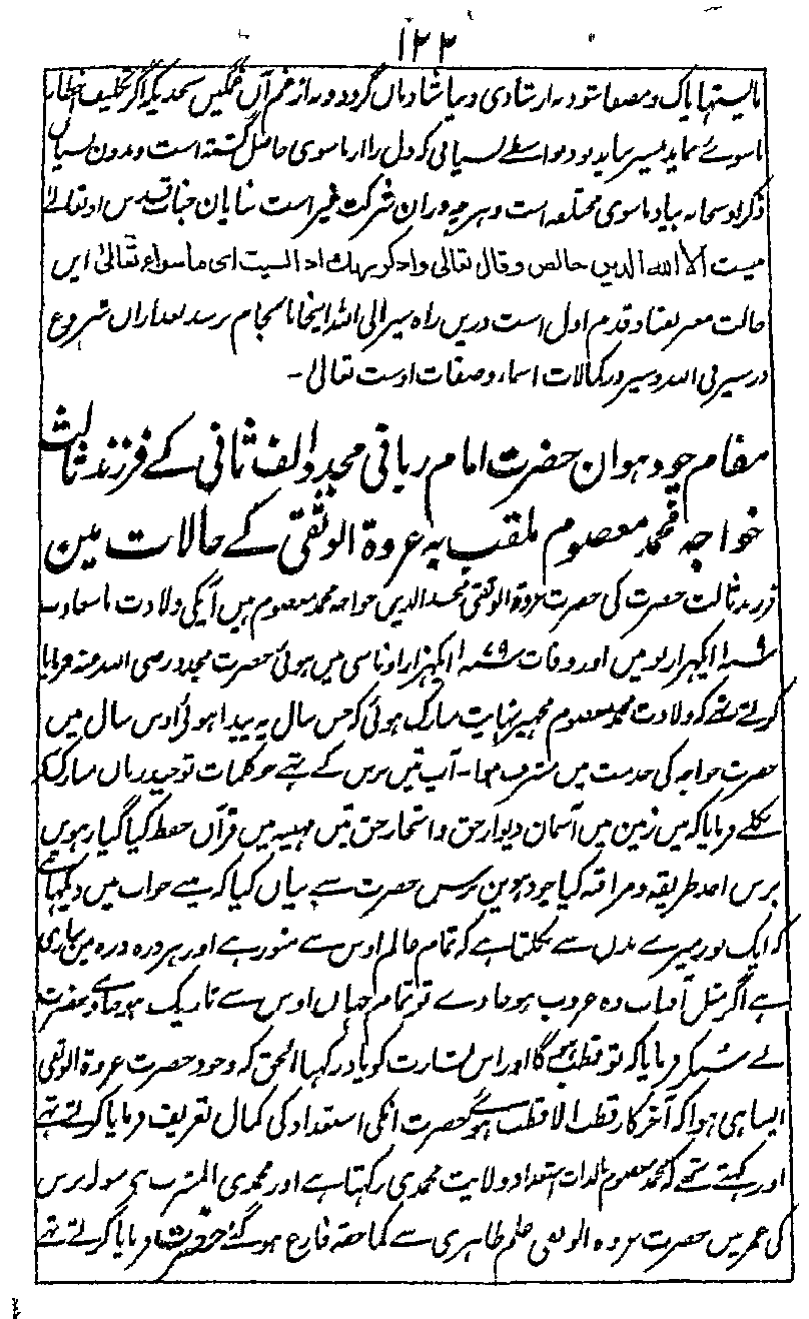 ۱۲۲
پاک و مصفا شود نه از شادی دنیا شادمان گردد و نه از غم آں غمگیں بحدیکہ اگر تکلیف اخطار
ماسوائے نماید میسر نیاید بواسطۂ نسیانی کہ دل را از ماسوی حاصل گشتہ است و بدون نسیاں
ذکر او سبحانہ بیاد ماسوی مختلط است و هرچہ دراں شرکت غیر است شایان جناب قدس او تعالے
نیست الا للہ الدین خالص وقال تعالی واذکر ربک اذا نسیت ای ماسواہ تعالیٰ ایں
حالت معبر بفنا و قدم اول است دریں راه سیر الی اللہ اینجا بانجام برسد بعد ازاں شروع
در سیر فی اللہ و سیر در کمالات اسماء و صفات اوست تعالیٰ ۔
مقام چودہوان حضرت امام ربانی مجدد الف ثانی کے فرزند ثالث
خواجہ محمد معصوم ملقب بہ عروۃ الوثقی کے حالات مین
فرزند ثالث حضرت کی حضرت عروۃ الوثقی مجد الدین خواجہ محمد معصوم ہیں آپکی ولادت باسعادت
ایکہزار نو میں اور وفات ۱۰۷۹ ایکہزار اوناسی میں ہوئی حضرت مجدد رضی اللہ عنہ فرمایا
کرتے تھے کہ ولادت محمد معصوم مجہپر نہایت مبارک ہوئی کہ جس سال یہ پیدا ہوئی اوس سال میں
حضرت خواجہ کی خدمت میں مشرف ہوا ۔ آپ تین برس کے تہے جو کلمات توحید زبان مبارک سے
نکلے فرمایا کہ میں زمین میں آسمان دیوار حق و اشجار حق تین مہینہ میں قرآن حفظ کیا گیارہویں
برس اخذ طریقہ و مراقبہ کیا چودہوین برس حضرت سے بیاں کیا کہ مینے خواب میں دیکہا ہے
کہ ایک نور میرے بدن سے نکلتا ہے کہ تمام عالم اوس سے منور ہے اور ہر ذرہ ذرہ مین ساری
ہے اگر مثل آفتاب وہ غروب ہو جاوے تو تمام جہاں اوس سے تاریک ہو جاوے حضرت
نے سنکر فرمایا کہ تو قطب ہوگا اور اس بشارت کو یاد رکہنا الحق کہ وجود حضرت عروۃ الوثقی
ایسا ہی ہوا کہ آخر کار قطب الاقطاب ہوئے حضرت انکی استعداد کی کمال تعریف فرمایا کرتے تہے
اور کہتے تہے کہ محمد معصوم بالذات استعداد ولایت محمدی رکہتا ہے اور محمدی المشرب ہے سولہ برس
کی عمر میں حضرت عروۃ الوثقی علم ظاہری سے کماحقہ فارغ ہو گئے حضرت فرمایا کرتے تہے